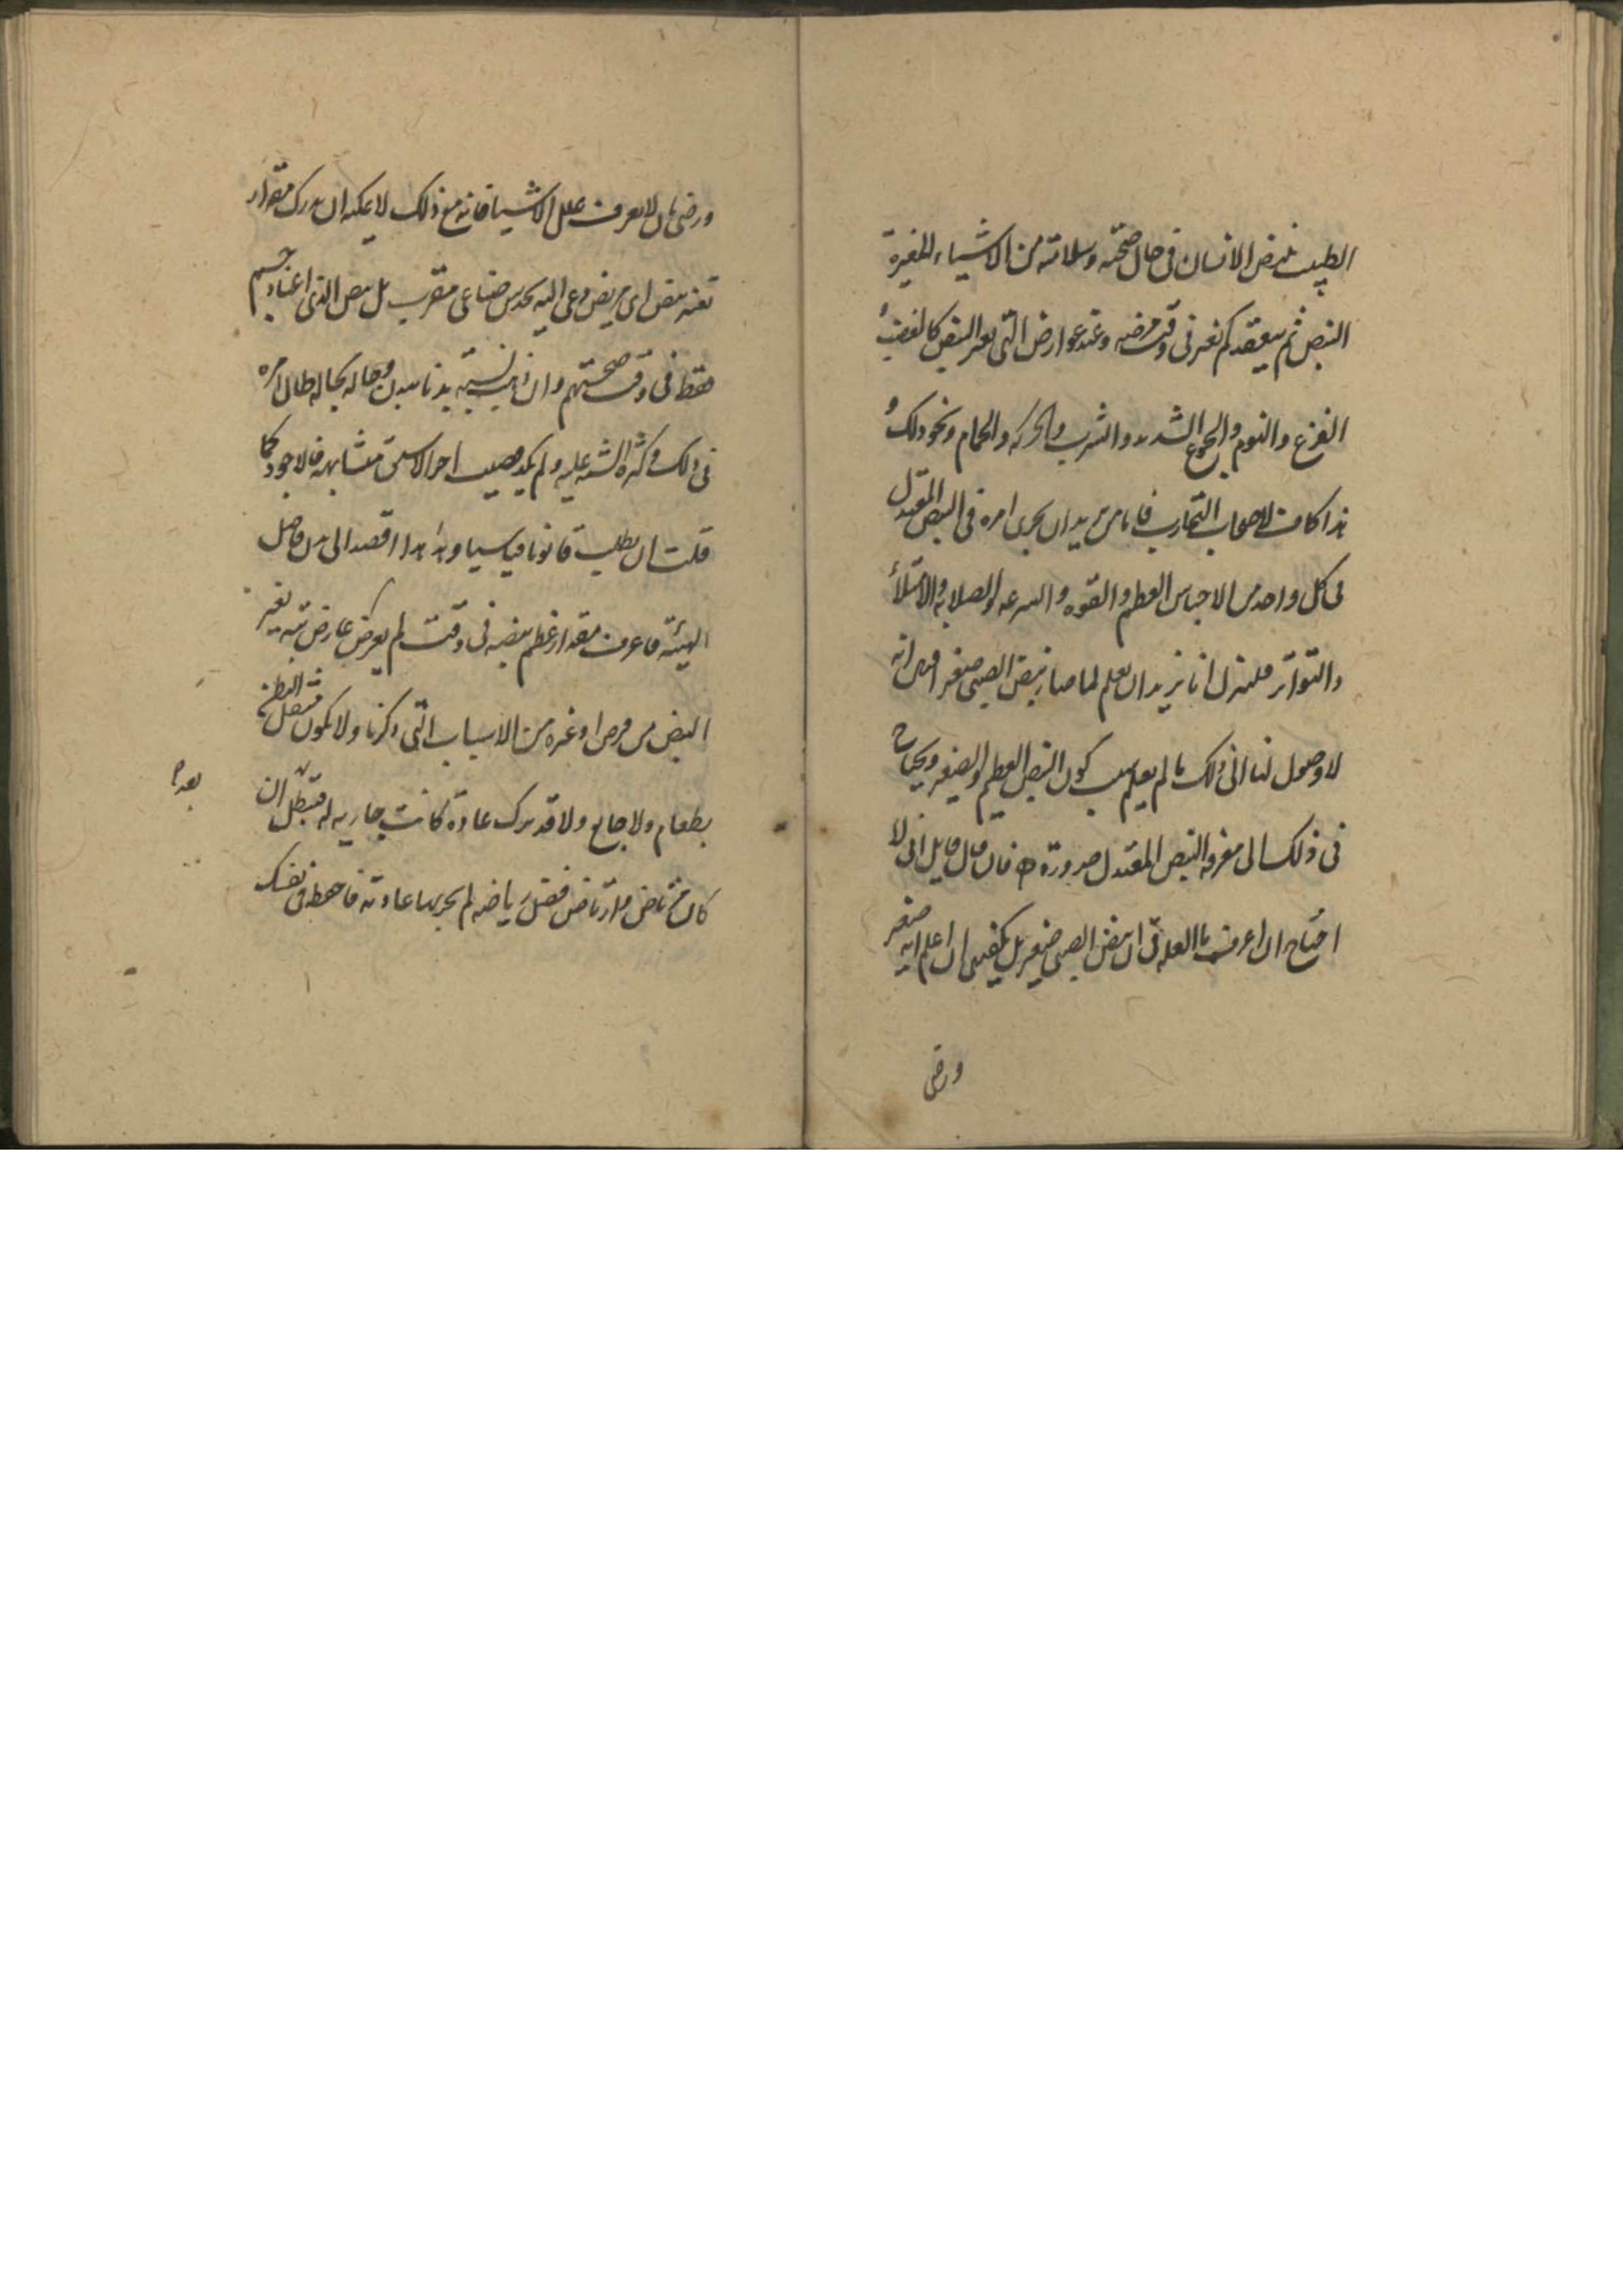 الطبيب نبض الانسان فى حال صحته وسلامته من الاشياء المغيرة
النبض ثم يتفقد كم تغير فى وقت مرضه وعند عوارض التى تغير النبض كالغضب و
الفزع والنوم والجوع الشديد والشرب والحركة والحمام ونحو ذلك و
هذا كاف لاصحاب التجارب فاما من يريد ان يجرى امره فى النبض المعتدل
فى كل واحد من الاجناس العظم والقوه والسرعه والصلابه والامتلاء
والتواتر فلننزل انا نريد ان نعلم لما صار نبض الصبى صغير اقول انه
لا وصول لنا الى ذلك ما لم يعلم سبب كون النبض العظيم والصغير ويحتاج
فى ذلك الى معرفه النبض المعتدل ضرورة فان قال قايل انى لا
احتاج ان اعرف ما العله فى ان نبض الصبى صغير بل يكفينى ان اعلم انه صغير
ورضى
ورضى بان لا يعرف علل الاشيا فانه مع ذلك لا يمكنه ان يدرك مقدار
تغير نبض اى مريض دعى اليه بحدس صناعى مقرب بل نبض الذى اعتاد جسهم
فقط فى وقت صحتهم وان ذهب نسبته بدنا ببدن وحاله بحاله طال امره
فى ذلك وكثره الشبه عليه ولم يكد يصيب احوالا متشابهه فالاجود كما
قلت ان يطلب قانونا قياسيا وهو هذا اقصد الى بدن فاضل
الهيئه فاعرف مقدار عظم نبضه فى وقت لم يعرض عارض شبه يغير
النبض من مرض او غيره من الاسباب التى ذكرنا ولا يكون مثقل البطن
بطعام ولا جايع ولا قد ترك عادة كانت جاريه له قبل ان
بعد
كان مرتاض وارتاض فضل رياضه لم يجر بها عادته فاحفظ فى نفسك